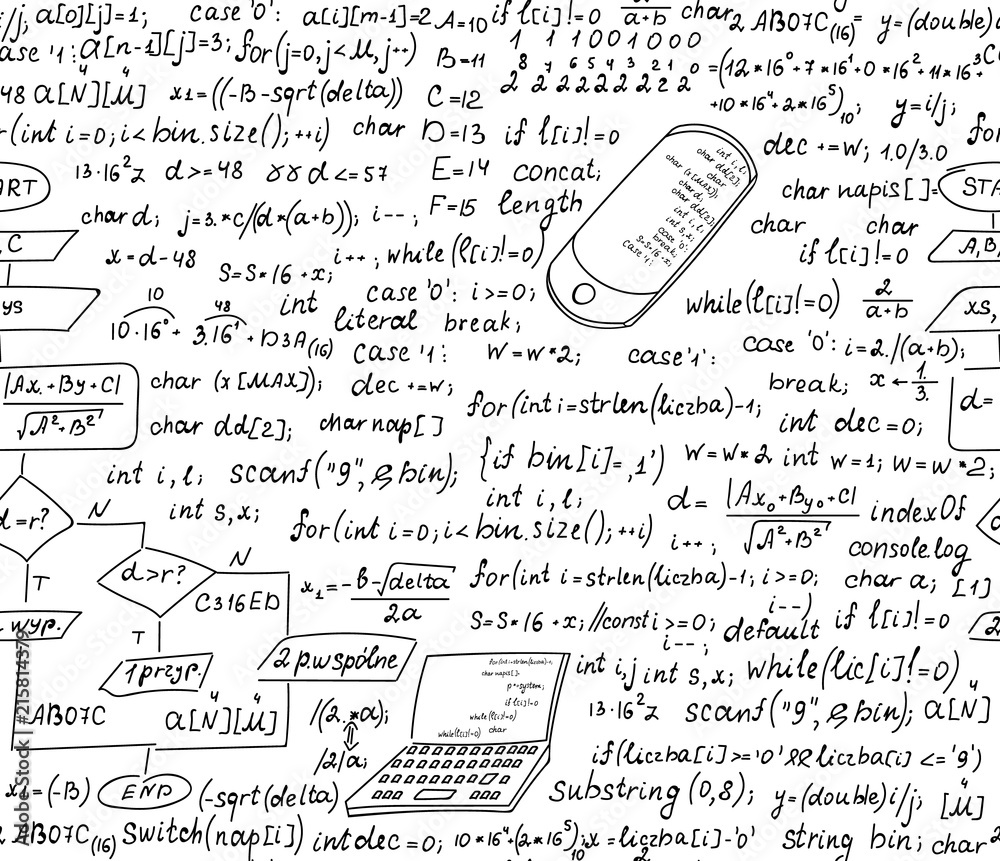 i/j; a[0][j]=1; case '0': a[i][m-1]=2 A=10 if l[i]!=0 a+b char 2 AB07C(16) y=(double)
ase '1': a[n-1][j]=3; for(j=0,j<M,j++) B=11 1 1 1001000
8 7 6 5 4 3 2 1 0
2 2 2 2 2 2 2 2 2 =(12*16⁰+7*16¹+0*16²+11*16³+
48 a[N][M] x1=((-B-sqrt(delta)) C=12 +10*16⁴+2*16⁵)10; y=i/j;
r(int i=0;i<bin.size();++i) char D=13 if l[i]!=0 dec +=W; 1.0/3.0 for
13·16²z d>=48 d<=57 E=14 concat; char napis[]=
ART STA
char d; j=3.*c/(d*(a+b)); i--; F=15 length char char
C x=d-48 i++; while(l[i]!=0) if l[i]!=0 A,B,
S=S*16+x;
int i,l;
char dd[2];
char
char (x[MAX]);
char d;
char dd[2];
int i,l;
int s,x;
case '0':
break;
S=S*16+x;
case '1':
ys 10 48 int case '0': i>=0; while(l[i]!=0) 2/(a+b) xs,
10·16⁰+ 3.16¹+D3A(16) literal break;
case '1': W=W*2; case '1': case '0': i=2./(a+b);
|Ax.+By+C| char (x[MAX]); dec +=w; break; x←1./3.
√A²+B² for(int i=strlen(liczba)-1; d=
char dd[2]; char nap[] int dec=0;
int i,l; scanf("9",&bin); {if bin[i]=,1') W=W*2 int w=1; W=W*2;
d=r? N int s,x; int i,l; d= |Ax₀+By₀+C| indexOf
for(int i=0;i<bin.size();++i) i++; √A²+B² console.log
d>r? N
T C316ED x1=-B-√delta for(int i=strlen(liczba)-1; i>=0; char a; [1]
2a i--)
wyp. S=S*16+x; //const i>=0; default if l[i]!=0
T i--;
1 przyp. 2 p.wspólne int i,j int s,x; while(lic[i]!=0)
for(int i=strlen(liczba)-1;
char napis[]=
p*=system;
if l[i]!=0
while(l[i]!=0)
while(l[i]!=0) char
AB07C a[N][M] /(2.*a); 13·16²z scanf("9",&bin); a[N]
/2/a; if(liczba[i]>='0' && liczba[i]<='9')
x2=(-B) END (-sqrt(delta) Substring (0,8); y=(double)i/j; [M]
AB07C(16) Switch(nap[i]) int dec=0; 10*16⁴+(2*16⁵)10;x=liczba[i]-'0' string bin; char
Adobe Stock | #215814379